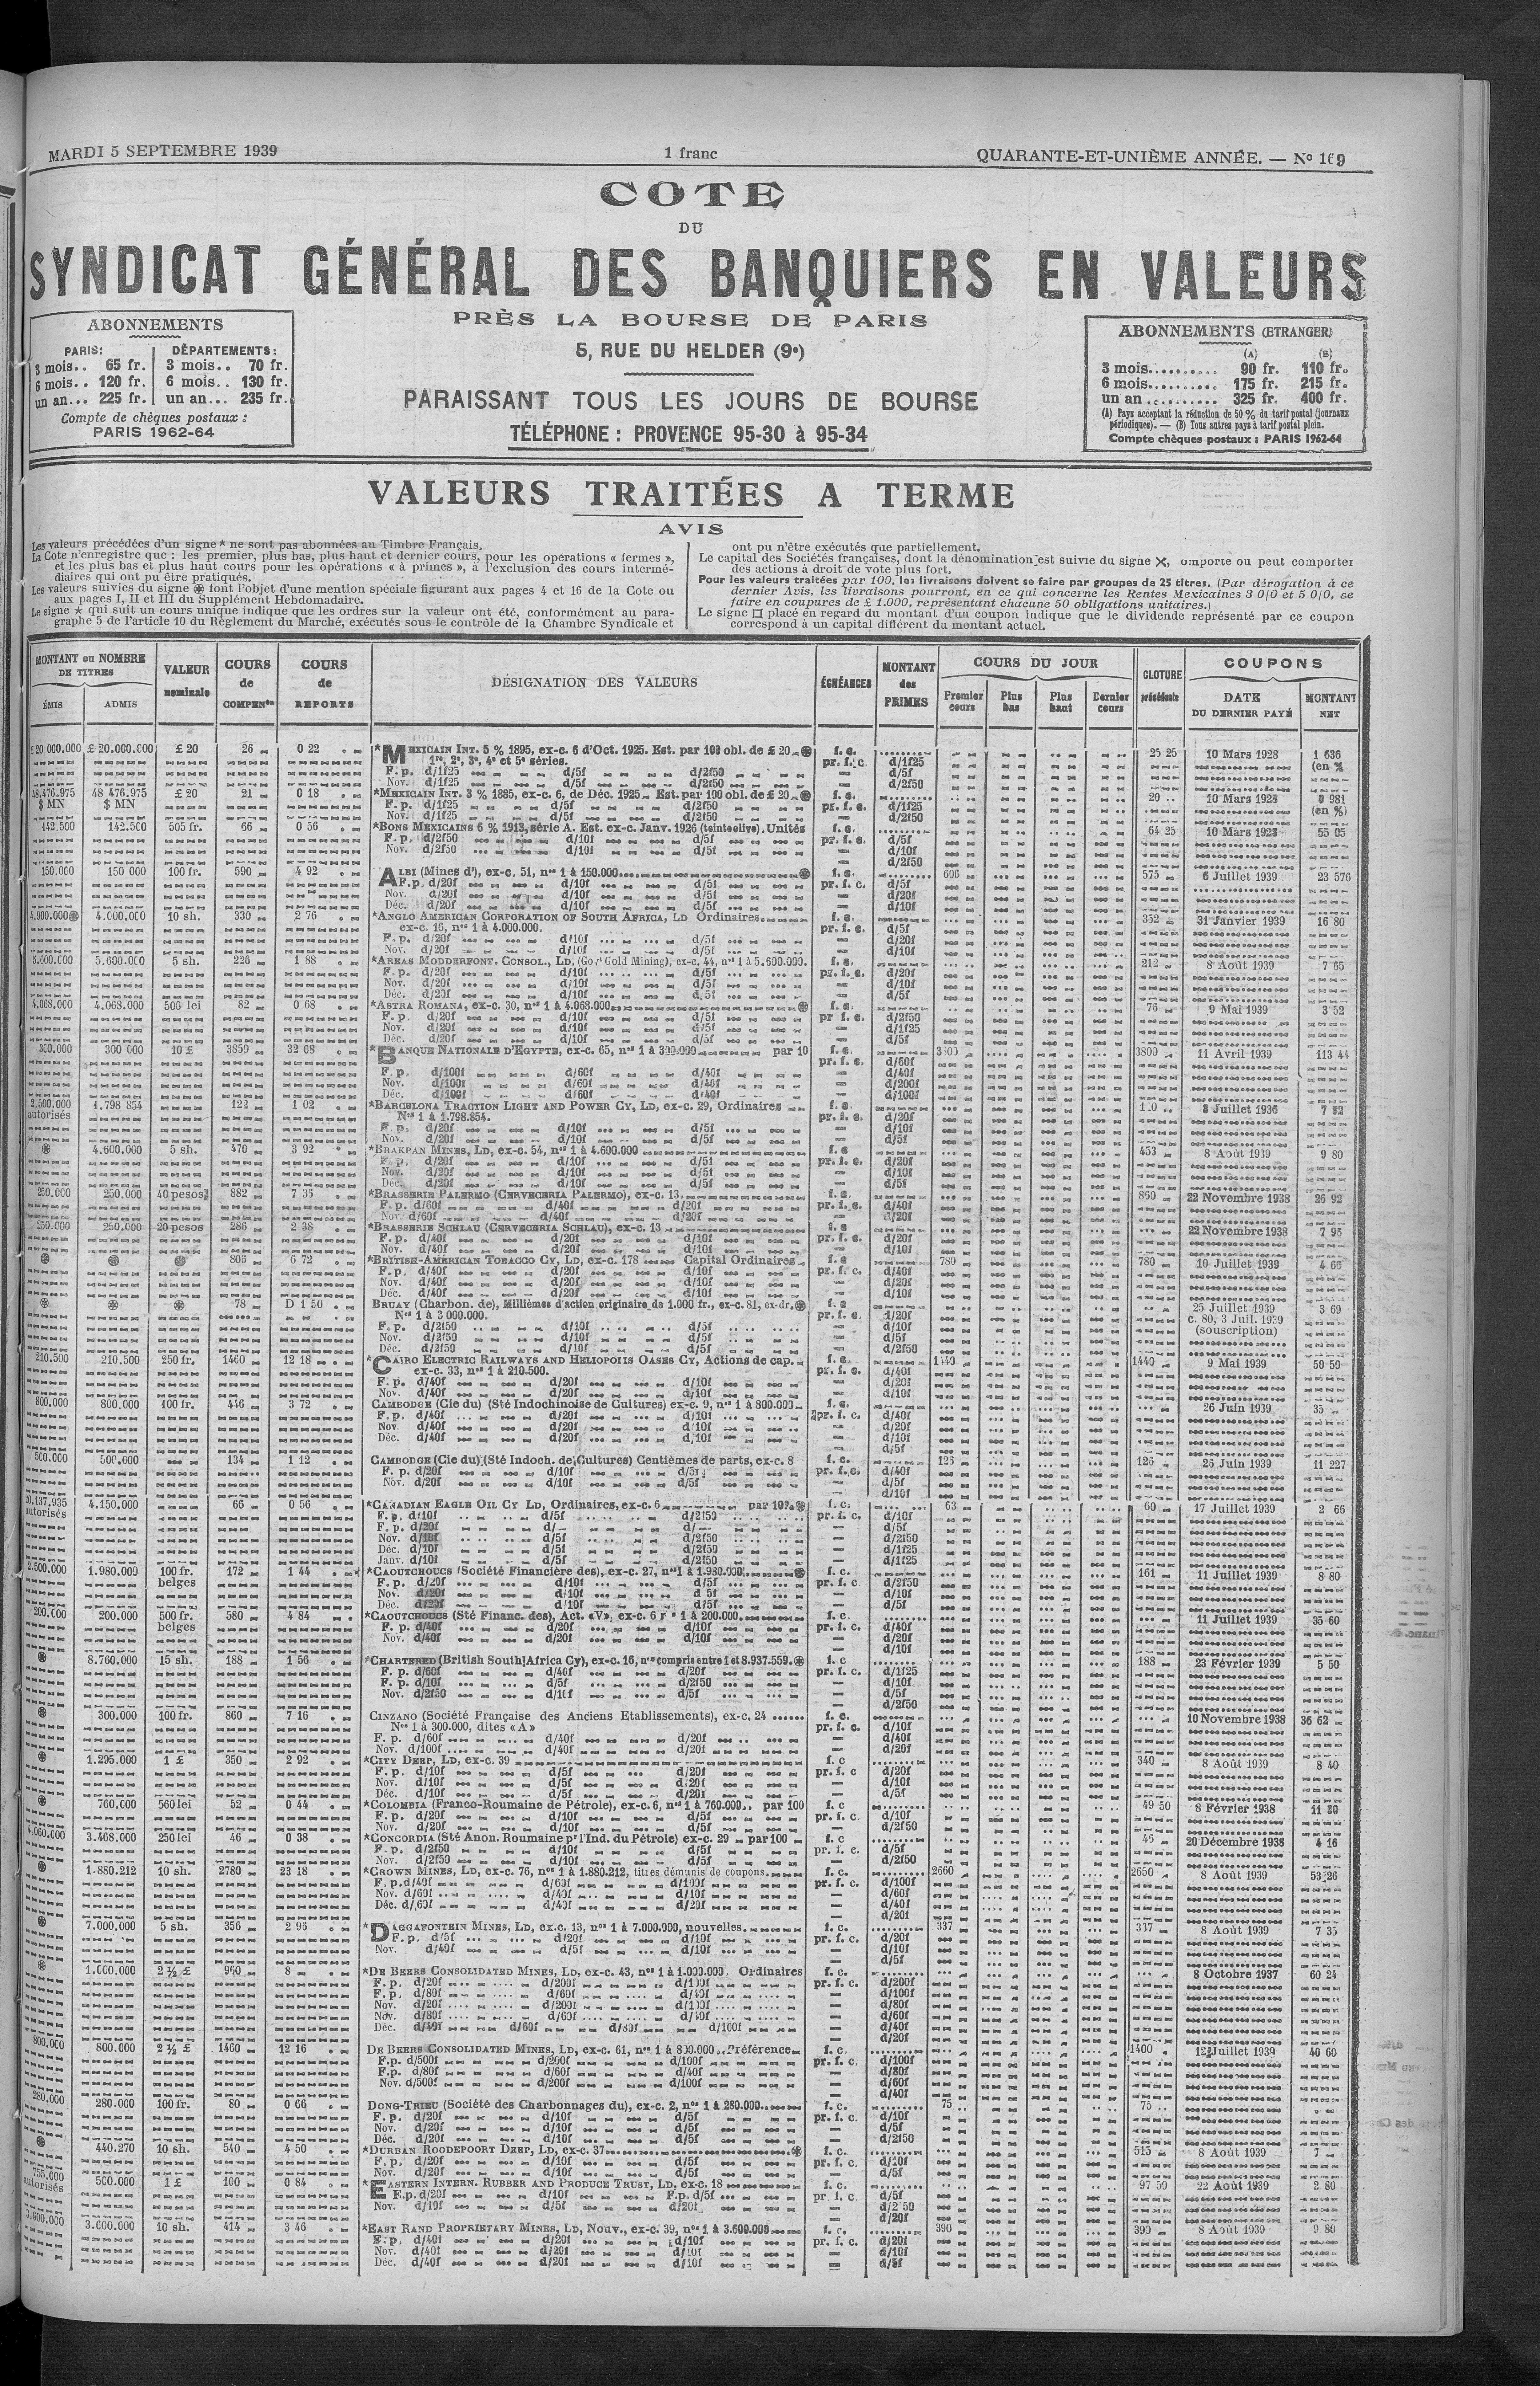 MARDI 5 SEPTEMBRE 1939
1 franc
QUARANTE-ET-UNIÈME ANNÉE. — No
COTE
DU
SYNDICAT GÉNÉRAL DES BANQUIERS EN VALEURS
PRÈS LA BOURSE DE PARIS
5, RUE DU HELDER (9e)
PARAISSANT TOUS LES JOURS DE BOURSE
TÉLÉPHONE : PROVENCE 95-30 à 95-34
ABONNEMENTS
PARIS: DÉPARTEMENTS:
3 mois.. 65 fr. 3 mois.. 70 fr.
6 mois.. 120 fr. 6 mois.. 130 fr.
un an... 225 fr. un an... 235 fr.
Compte de chèques postaux :
PARIS 1962-64
ABONNEMENTS (ETRANGER)
(A) (B)
3 mois.......... 90 fr. 110 fr.
6 mois.......... 175 fr. 215 fr.
un an .......... 325 fr. 400 fr.
(A) Pays acceptant la réduction de 50 % du tarif postal (journaux
périodiques). — (B) Tous autres pays à tarif postal plein.
Compte chèques postaux : PARIS 1962-64
VALEURS TRAITÉES A TERME
AVIS
Les valeurs précédées d'un signe * ne sont pas abonnées au Timbre Français.
La Cote n'enregistre que : les premier, plus bas, plus haut et dernier cours, pour les opérations « fermes »,
et les plus bas et plus haut cours pour les opérations « à primes », à l'exclusion des cours intermé-
diaires qui ont pu être pratiqués.
Les valeurs suivies du signe ⊛ font l'objet d'une mention spéciale figurant aux pages 4 et 16 de la Cote ou
aux pages I, II et III du Supplément Hebdomadaire.
Le signe ★ qui suit un cours unique indique que les ordres sur la valeur ont été, conformément au para-
graphe 5 de l'article 10 du Règlement du Marché, exécutés sous le contrôle de la Chambre Syndicale et
ont pu n'être exécutés que partiellement.
Le capital des Sociétés françaises, dont la dénomination est suivie du signe ✕, omporte ou peut comporter
des actions à droit de vote plus fort.
Pour les valeurs traitées par 100, les livraisons doivent se faire par groupes de 25 titres. (Par dérogation à ce
dernier Avis, les livraisons pourront, en ce qui concerne les Rentes Mexicaines 3 0/0 et 5 0/0, se
faire en coupures de £ 1.000, représentant chacune 50 obligations unitaires.)
Le signe □ placé en regard du montant d'un coupon indique que le dividende représenté par ce coupon
correspond à un capital différent du montant actuel.
MONTANT ou NOMBRE DE TITRES
ÉMIS ADMIS
VALEUR nominale
COURS de COMPENon
COURS de REPORTS
DÉSIGNATION DES VALEURS
ÉCHÉANCES
MONTANT des PRIMES
COURS DU JOUR
Premier cours Plus bas Plus haut Dernier cours
CLOTURE précédente
COUPONS
DATE DU DERNIER PAYÉ MONTANT NET
£ 20.000.000 £ 20.000.000 £ 20 26 0 22 *MEXICAIN INT. 5 % 1895, ex-c. 6 d'Oct. 1925. Est. par 100 obl. de £ 20 ⊛ f. c. 25 25 10 Mars 1928 1 636
1re, 2e, 3e, 4e et 5e séries. pr. f. c. d/1f25 (en %
F. p. d/1f25 d/5f d/2f50 — d/5f
Nov. d/1f25 d/5f d/2f50 — d/2f50
48.476.975 48 476.975 £ 20 21 0 18 *MEXICAIN INT. 3 % 1885, ex-c. 6, de Déc. 1925 Est. par 100 obl. de £ 20 ⊛ f. c. 20 10 Mars 1928 0 981
$ MN $ MN F. p. d/1f25 d/5f d/2f50 pr. f. c. d/1f25 (en %)
Nov. d/1f25 d/5f d/2f50 — d/2f50
142.500 142.500 505 fr. 66 0 56 *BONS MEXICAINS 6 % 1913, série A. Est. ex-c. Janv. 1926 (teinte olive). Unités f. c. 64 25 10 Mars 1928 55 05
F. p. d/2f50 d/10f d/5f pr. f. c. d/5f
Nov. d/2f50 d/10f d/5f — d/10f
— d/2f50
150.000 150 000 100 fr. 590 4 92 ALBI (Mines d'), ex-c. 51, nos 1 à 150.000 ⊛ f. c. 606 575 6 Juillet 1939 23 576
F.p. d/20f d/10f d/5f pr. f. c. d/5f
Nov. d/20f d/10f d/5f — d/20f
Déc. d/20f d/10f d/5f — d/10f
4.900.000⊛ 4.000.000 10 sh. 330 2 76 *ANGLO AMERICAN CORPORATION OF SOUTH AFRICA, LD Ordinaires f. c. 352 31 Janvier 1939 16 80
ex-c. 16, nos 1 à 4.000.000. pr. f. c. d/5f
F. p. d/20f d/10f d/5f — d/20f
Nov. d/20f d/10f d/5f — d/10f
5.600.000 5.600.000 5 sh. 226 1 88 *AREAS MODDERFONT. CONSOL., LD, (Govt Gold Mining), ex-c. 44, nos 1 à 5.600.000. f. c. 212 8 Août 1939 7 65
F. p. d/20f d/10f d/5f pr. f. c. d/20f
Nov. d/20f d/10f d/5f — d/10f
Déc. d/20f d/10f d/5f — d/5f
4.068.000 4.068.000 500 lei 82 0 68 *ASTRA ROMANA, ex-c. 30, nos 1 à 4.068.000 ⊛ f. c. 76 9 Mai 1939 3 52
F. p. d/20f d/10f d/5f pr. f. c. d/2f50
Nov. d/20f d/10f d/5f — d/1f25
Déc. d/20f d/10f d/5f — d/5f
300.000 300 000 10 £ 3850 32 08 *BANQUE NATIONALE D'EGYPTE, ex-c. 65, nos 1 à 300.000 par 10 f. c. 3800 3800 11 Avril 1939 113 44
pr. f. c. d/60f
F. p. d/100f d/60f d/40f — d/40f
Nov. d/100f d/60f d/40f — d/200f
Déc. d/100f d/60f d/40f — d/100f
2.500.000 1.798 854 122 1 02 *BARCELONA TRACTION LIGHT AND POWER CY, LD, ex-c. 29, Ordinaires f. c. 8 Juillet 1936 7 82
autorisés Nos 1 à 1.798.854. pr. f. c. d/20f
F. p. d/20f d/10f d/5f — d/10f
Nov. d/20f d/10f d/5f — d/5f
⊛ 4.600.000 5 sh. 470 3 92 *BRAKPAN MINES, LD, ex-c. 54, nos 1 à 4.600.000 f. c 453 8 Août 1939 9 80
F. p. d/20f d/10f d/5f pr. f. c. d/20f
Nov. d/20f d/10f d/5f — d/10f
Déc. d/20f d/10f d/5f — d/5f
250.000 250.000 40 pesos 882 7 35 *BRASSERIE PALERMO (CERVECERIA PALERMO), ex-c. 13 f. c. 860 22 Novembre 1938 26 92
F. p. d/60f d/40f d/20f pr. f. c. d/40f
Nov. d/60f d/40f d/20f — d/20f
250.000 250.000 20 pesos 286 2 38 *BRASSERIE SCHLAU (CERVECERIA SCHLAU), ex-c. 13 f. c 22 Novembre 1938 7 95
F. p. d/40f d/20f d/10f pr. f. c. d/20f
Nov. d/40f d/20f d/10f — d/10f
⊛ ⊛ ⊛ 806 6 72 *BRITISH-AMERICAN TOBACCO CY, LD, ex-c. 178 Capital Ordinaires f. c 780 780 10 Juillet 1939 4 65
F. p. d/40f d/20f d/10f pr. f. c. d/40f
Nov. d/40f d/20f d/10f — d/20f
Déc. d/40f d/20f d/10f — d/10f
⊛ ⊛ ⊛ 78 D 1 50 BRUAY (Charbon. de), Millièmes d'action originaire de 1.000 fr., ex-c. 81, ex-dr. ⊛ f. c 25 Juillet 1939 3 69
Nos 1 à 3 000.000. pr. f. c. d/20f c. 80, 3 Juil. 1939
F. p. d/2f50 d/10f d/5f — d/10f (souscription)
Nov. d/2f50 d/10f d/5f — d/5f
Déc. d/2f50 d/10f d/5f — d/2f50
210.500 210.500 250 fr. 1460 12 18 *CAIRO ELECTRIC RAILWAYS AND HELIOPOLIS OASES CY, Actions de cap. f. c. 1440 1440 9 Mai 1939 50 50
ex-c. 33, nos 1 à 210.500. pr. f. c. d/40f
F. p. d/40f d/20f d/10f — d/20f
Nov. d/40f d/20f d/10f — d/10f
800.000 800.000 100 fr. 446 3 72 CAMBODGE (Cie du) (Sté Indochinoise de Cultures) ex-c. 9, nos 1 à 800.000 f. c. 26 Juin 1939 35
F. p. d/40f d/20f d/10f pr. f. c. d/40f
Nov. d/40f d/20f d/10f — d/20f
Déc. d/40f d/20f d/10f — d/10f
— d/5f
500.000 500.000 134 1 12 CAMBODGE (Cie du) (Sté Indoch. de Cultures) Centièmes de parts, ex-c. 8 f. c. 126 126 26 Juin 1939 11 227
F. p. d/20f d/10f d/5f pr. f. c. d/40f
Nov. d/20f d/10f d/5f — d/5f
— d/10f
20.137.935 4.150.000 66 0 56 *CANADIAN EAGLE OIL CY LD, Ordinaires, ex-c. 6 par 100 ⊛ f. c. 63 60 17 Juillet 1939 2 66
autorisés F. p. d/10f d/5f d/2f50 pr. f. c. d/10f
F. p. d/20f d/ d/ — d/5f
Nov. d/10f d/5f d/2f50 — d/2f50
Déc. d/10f d/5f d/2f50 — d/1f25
Janv. d/10f d/5f d/2f50 — d/1f25
2.500.000 1.980.000 100 fr. 172 1 44 *CAOUTCHOUCS (Société Financière des), ex-c. 27, nos 1 à 1.980.000. ⊛ f. c. 161 11 Juillet 1939 8 80
belges F. p. d/20f d/10f d/5f pr. f. c d/2f50
Nov. d/20f d/10f d/5f — d/10f
Déc. d/20f d/10f d/5f — d/5f
200.000 200.000 500 fr. 580 4 84 *CAOUTCHOUCS (Sté Financ. des), Act. «V», ex-c. 6 nos 1 à 200.000 f. c. 11 Juillet 1939 35 60
belges F. p. d/40f d/20f d/10f pr. f. c. d/40f
Nov. d/40f d/20f d/10f — d/20f
— d/10f
⊛ 8.760.000 15 sh. 188 1 56 *CHARTERED (British South Africa Cy), ex-c. 16, nos compris entre 1 et 8.937.559. ⊛ f. c 188 23 Février 1939 5 50
F. p. d/60f d/40f d/20f pr. f. c. d/1f25
F. p. d/10f d/5f d/2f50 — d/10f
Nov. d/2f50 d/10f d/5f — d/5f
— d/2f50
⊛ 300.000 100 fr. 860 7 16 CINZANO (Société Française des Anciens Etablissements), ex-c. 24 f. c. 10 Novembre 1938 36 62
Nos 1 à 300.000, dites «A» pr. f. c. d/10f
F. p. d/60f d/40f d/20f — d/40f
Nov. d/100f d/40f d/20f — d/20f
⊛ 1.295.000 1 £ 350 2 92 *CITY DEEP, LD, ex-c. 39 f. c 340 8 Août 1939 8 40
F. p. d/10f d/5f d/20f pr. f. c d/20f
Nov. d/10f d/5f d/20f — d/10f
Déc. d/10f d/5f d/20f — d/5f
⊛ 760.000 560 lei 52 0 44 *COLOMBIA (Franco-Roumaine de Pétrole), ex-c. 6, nos 1 à 760.000 par 100 f. c 49 50 8 Février 1938 11 20
F. p. d/20f d/10f d/5f pr. f. c. d/10f
Nov. d/20f d/10f d/5f — d/2f50
4.060.000 3.468.000 250 lei 46 0 38 *CONCORDIA (Sté Anon. Roumaine pr l'Ind. du Pétrole) ex-c. 29 par 100 f. c 46 20 Décembre 1938 4 16
F. p. d/2f50 d/10f d/5f pr. f. c. d/5f
Nov. d/2f50 d/10f d/5f — d/2f50
⊛ 1.880.212 10 sh. 2780 23 18 *CROWN MINES, LD, ex-c. 76, nos 1 à 1.880.212, titres démunis de coupons. f. c. 2660 2650 8 Août 1939 53 26
F. p. d/40f d/60f d/100f pr. f. c. d/100f
Nov. d/60f d/40f d/10f — d/60f
Déc. d/60f d/40f d/20f — d/40f
— d/20f
⊛ 7.000.000 5 sh. 356 2 96 *DAGGAFONTEIN MINES, LD, ex.c. 13, nos 1 à 7.000.000, nouvelles. f. c. 337 337 8 Août 1939 7 35
F. p. d/5f d/20f d/10f pr. f. c. d/20f
Nov. d/40f d/5f d/10f — d/10f
— d/5f
⊛ 1.000.000 2 ½ £ 960 8 *DE BEERS CONSOLIDATED MINES, LD, ex-c. 43, nos 1 à 1.000.000. Ordinaires f. c. 8 Octobre 1937 60 24
F. p. d/20f d/200f d/100f pr. f. c. d/200f
F. p. d/80f d/60f d/40f — d/100f
Nov. d/20f d/200f d/100f — d/80f
Nov. d/80f d/60f d/40f — d/60f
Déc. d/40f d/60f d/80f d/100f — d/40f
— d/20f
800.000 800.000 2 ½ £ 1460 12 16 DE BEERS CONSOLIDATED MINES, LD, ex-c. 61, nos 1 à 800.000. Préférence f. c. 1400 12 Juillet 1939 40 60
F.p. d/500f d/200f d/100f pr. f. c. d/100f
F.p. d/80f d/60f d/40f — d/80f
Nov. d/500f d/200f d/100f — d/60f
— d/40f
280.000 280.000 100 fr. 80 0 66 DONG-TRIEU (Société des Charbonnages du), ex-c. 2, nos 1 à 280.000 f. c. 75 75
F. p. d/20f d/10f d/5f pr. f. c. d/10f
Nov. d/20f d/10f d/5f — d/5f
Déc. d/20f d/10f d/5f — d/2f50
⊛ 440.270 10 sh. 540 4 50 *DURBAN ROODEPOORT DEEP, LD, ex-c. 37 ⊛ f. c. 515 8 Août 1939 7
F. p. d/20f d/10f d/5f pr. f. c. d/20f
Nov. d/20f d/10f d/5f — d/5f
755.000 500.000 1 £ 100 0 84 *EASTERN INTERN. RUBBER AND PRODUCE TRUST, LD, ex-c. 18 f. c. 97 50 22 Août 1939 2 80
autorisés F.p. d/20f d/10f F.p. d/5f pr. f. c. d/5f
Nov. d/10f d/5f d/20f — d/2 50
— d/20f
3.600.000 3.600.000 10 sh. 414 3 46 *EAST RAND PROPRIETARY MINES, LD, Nouv., ex-c. 39, nos 1 à 3.600.000 f. c. 390 390 8 Août 1939 9 80
F. p. d/40f d/20f d/10f pr. f. c. d/20f
Nov. d/40f d/20f d/10f — d/10f
Déc. d/40f d/20f d/10f — d/5f